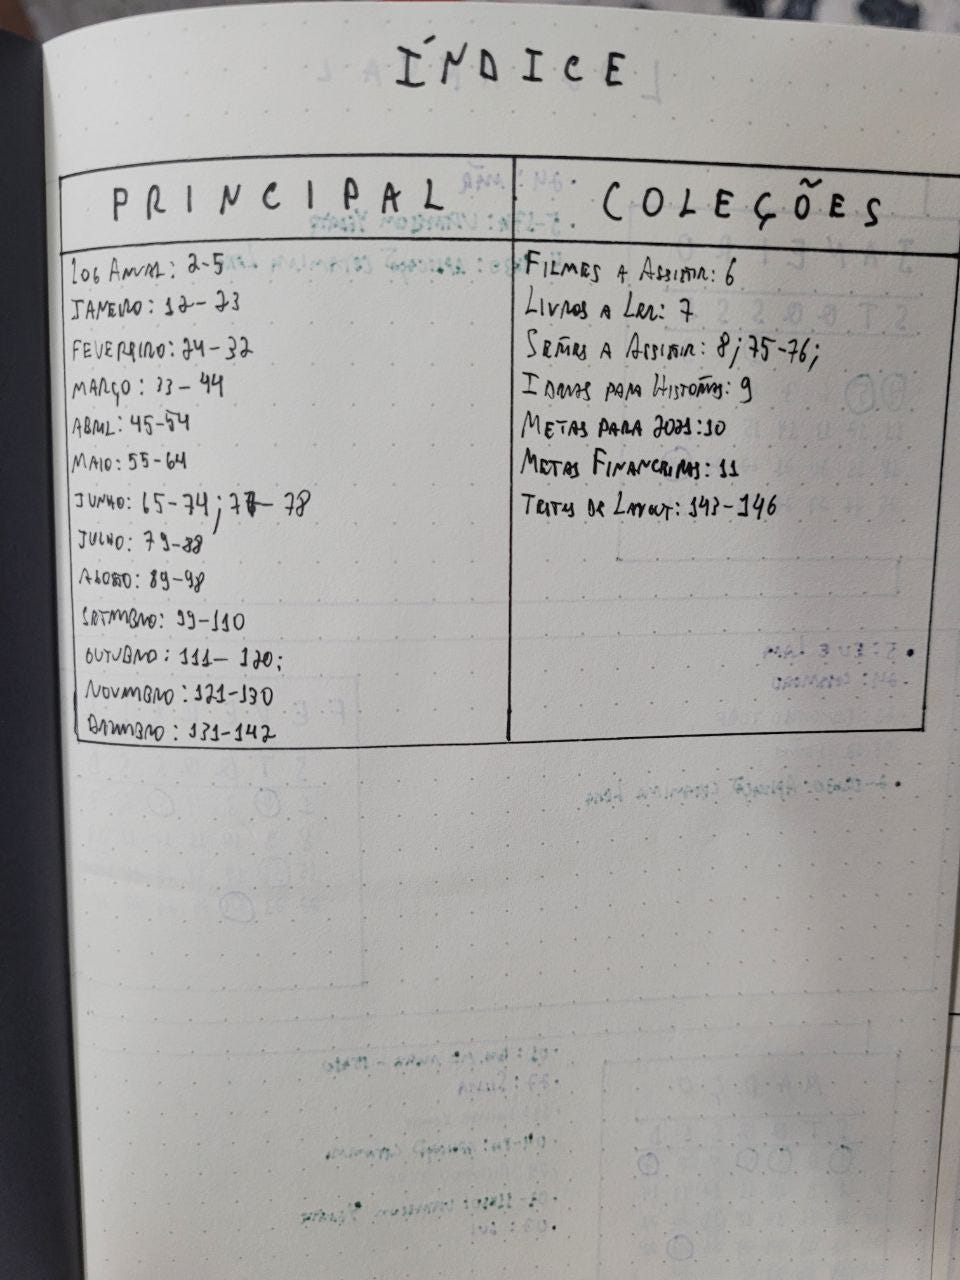 ÍNDICE
PRINCIPAL
LOG ANUAL: 2-5
JANEIRO: 12-23
FEVEREIRO: 24-32
MARÇO: 33-44
ABRIL: 45-54
MAIO: 55-64
JUNHO: 65-74; 77-78
JULHO: 79-88
AGOSTO: 89-98
SETEMBRO: 99-110
OUTUBRO: 111-120;
NOVEMBRO: 121-130
DEZEMBRO: 131-142
COLEÇÕES
FILMES A ASSISTIR: 6
LIVROS A LER: 7
SÉRIES A ASSISTIR: 8; 75-76;
IDEIAS PARA HISTÓRIAS: 9
METAS PARA 2021: 10
METAS FINANCEIRAS: 11
TESTES DE LAYOUT: 143-146